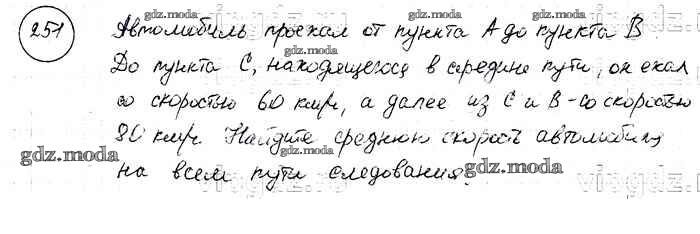 251 Автомобиль проехал от пункта А до пункта В
До пункта С, находящегося в середине пути, он ехал
со скоростью 60 км/ч, а далее из С и В - со скоростью
80 км/ч. Найдите среднюю скорость автомобиля
на всем пути следования.
gdz.moda
gdz.moda
gdz.moda
gdz.moda
gdz.moda
gdz.moda
gdz.moda